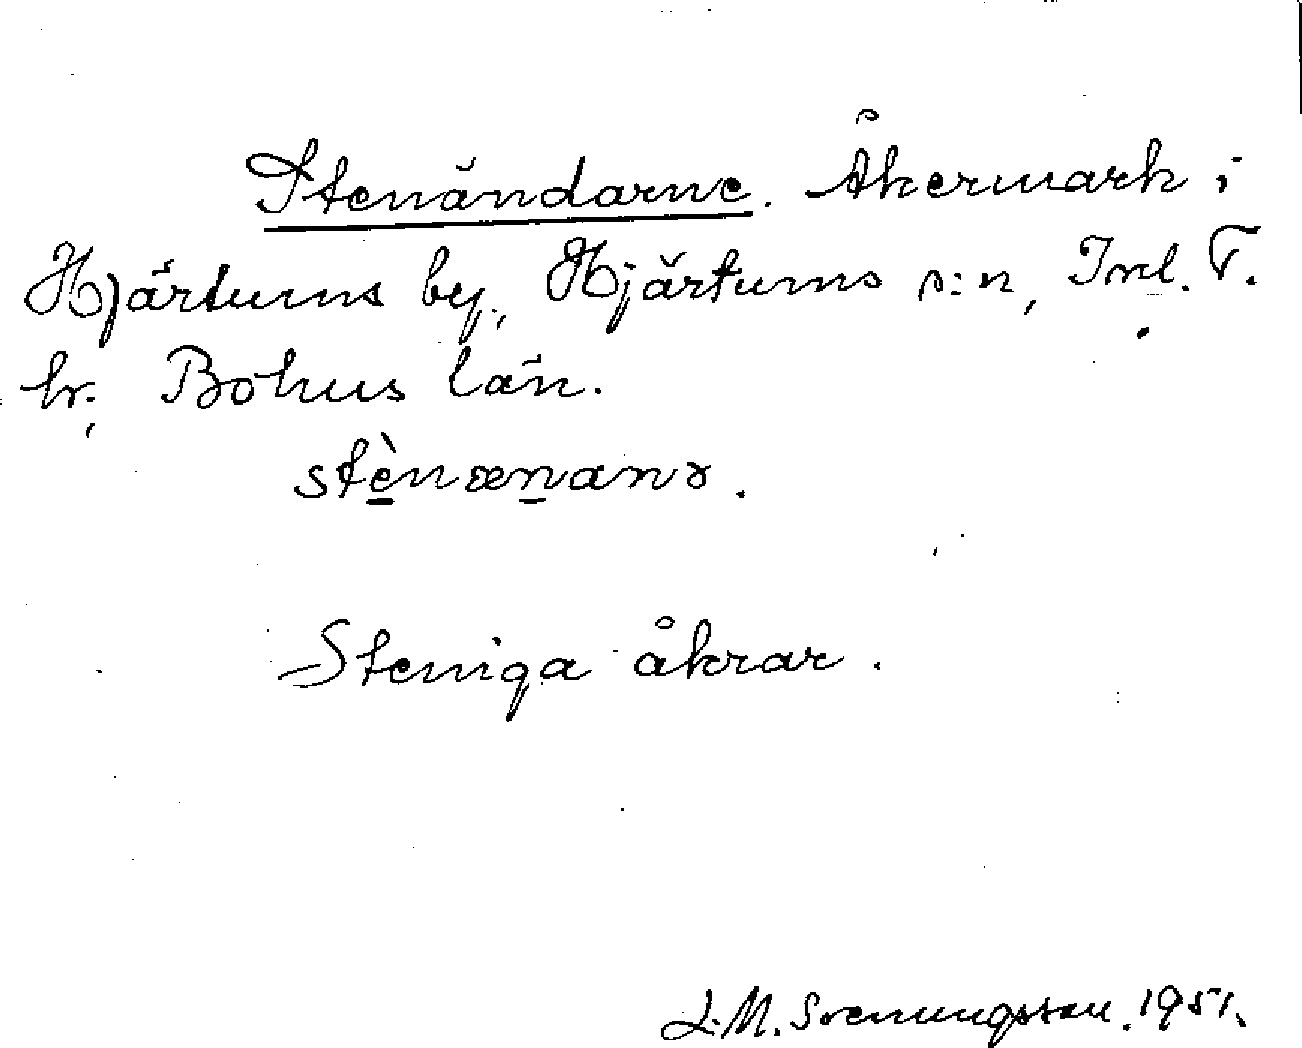 Stenändarne. Åkermark i
Hjärtums by, Hjärtums s:n, Inl. T.
hr., Bohus län.
stènænanə.
Steniga åkrar.
J.M. Svenungsson. 1951.